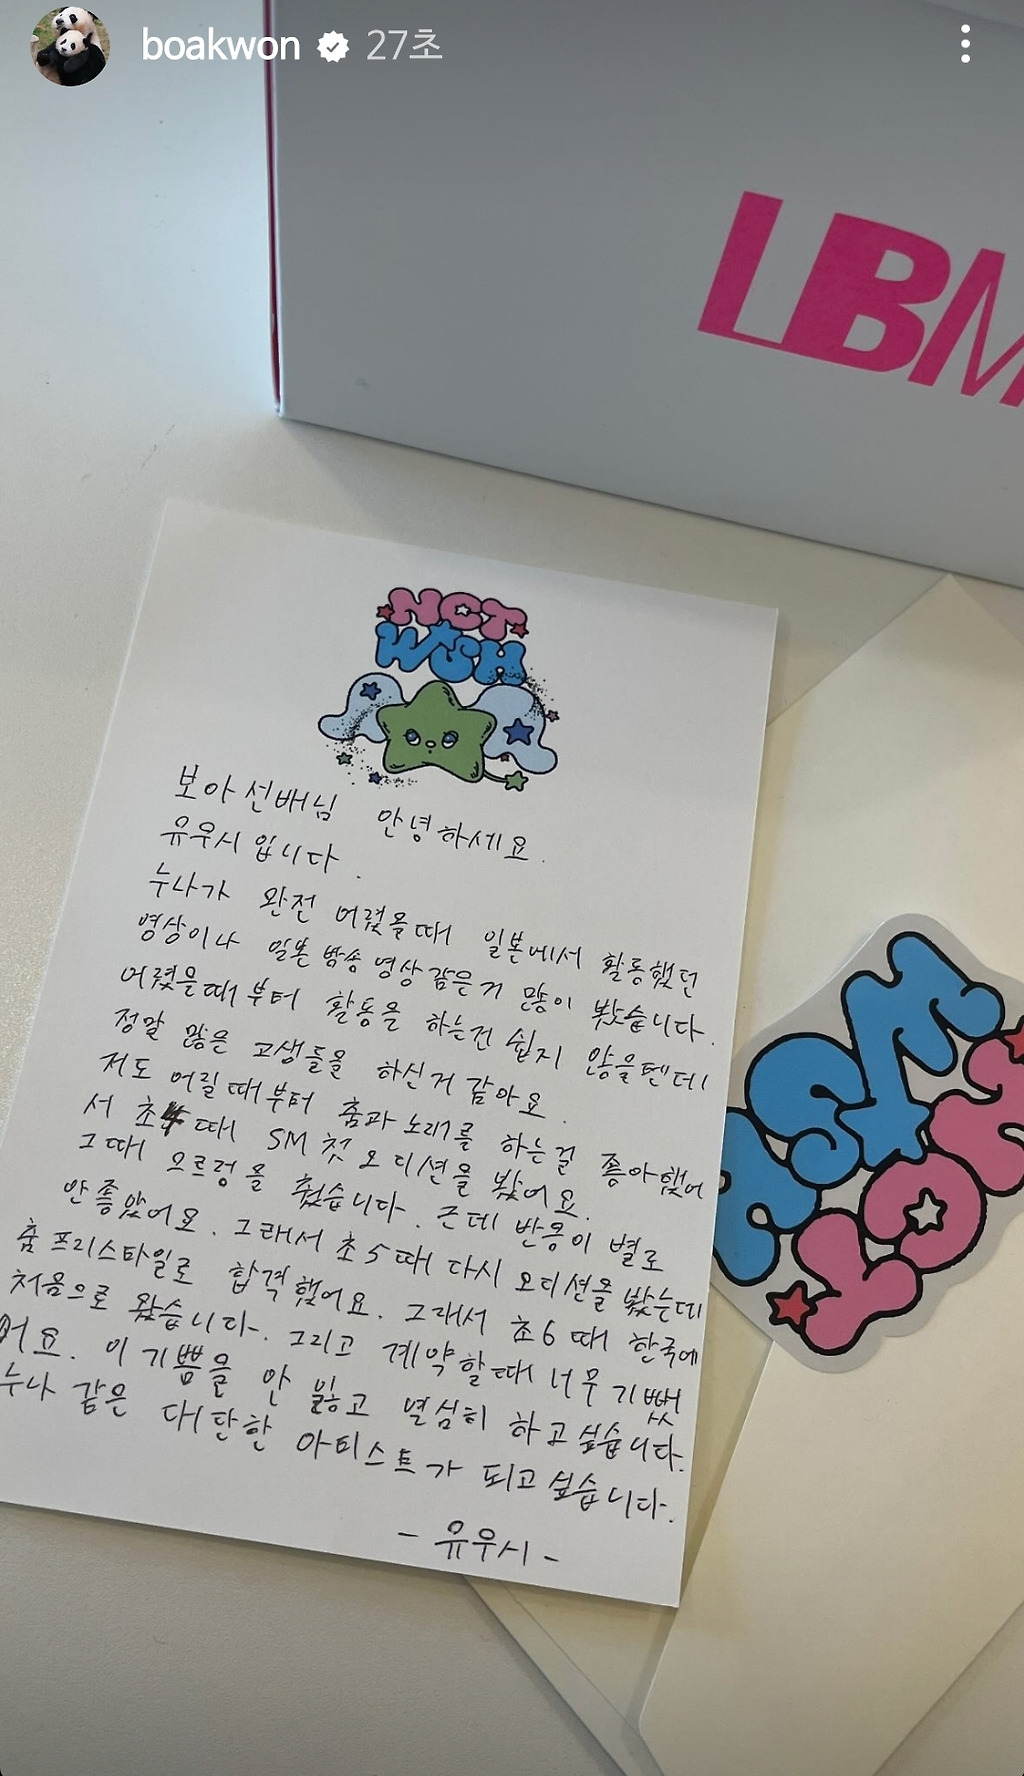 boakwon 27초
LBM
NCT
WISH
보아 선배님 안녕하세요.
유우시입니다.
누나가 완전 어렸을때 일본에서 활동했던
영상이나 일본 방송 영상 같은거 많이 봤습니다.
어렸을때부터 활동을 하는건 쉽지 않을텐데
정말 많은 고생들을 하신거 같아요.
저도 어릴때부터 춤과 노래를 하는걸 좋아했어
서 초4때 SM 첫 오디션을 봤어요.
그때 으르렁을 췄습니다. 근데 반응이 별로
안좋았어요. 그래서 초5때 다시 오디션을 봤는데
춤 프리스타일로 합격했어요. 그래서 초6때 한국에
처음으로 왔습니다. 그리고 계약할때 너무 기뻤
어요. 이 기쁨을 안 잃고 열심히 하고싶습니다.
누나 같은 대단한 아티스트가 되고싶습니다.
- 유우시 -
NCT
WISH